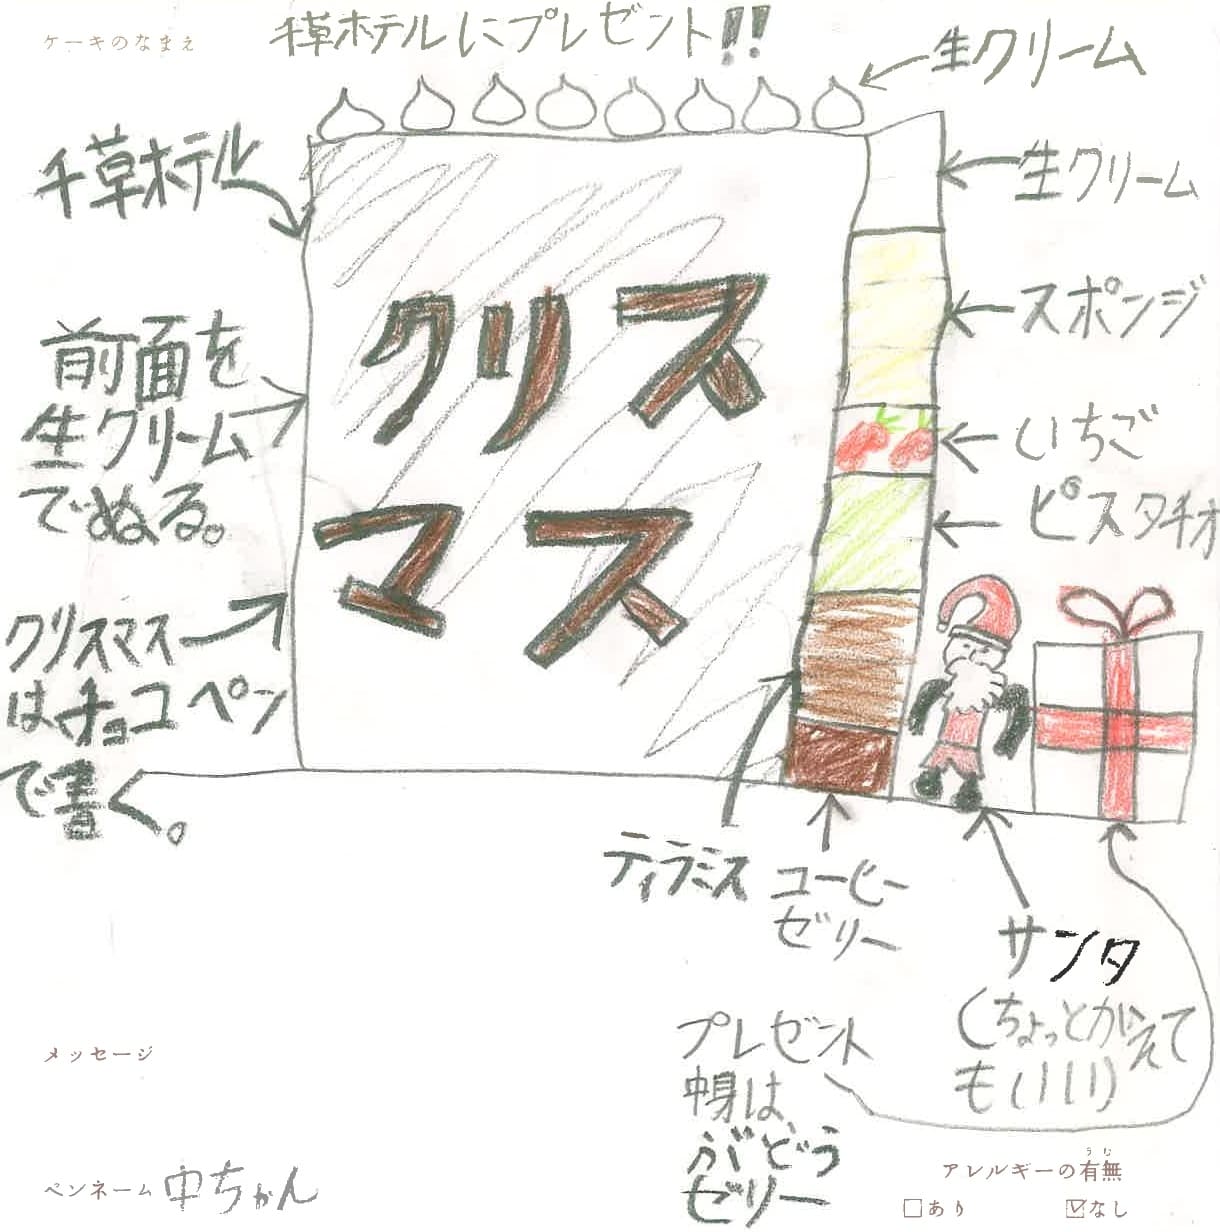 ケーキのなまえ
千草ホテルにプレゼント!!
生クリーム
千草ホテル
生クリーム
前面を
生クリーム
でぬる。
クリス
マス
スポンジ
いちご
ピスタチオ
クリスマス
はチョコペン
で書く。
ティラミス
コーヒー
ゼリー
サンタ
(ちょっとかえて
もいい)
プレゼント
中身は、
ぶどう
ゼリー
メッセージ
ペンネーム 中ちゃん
アレルギーの有無
うむ
□あり ☑なし